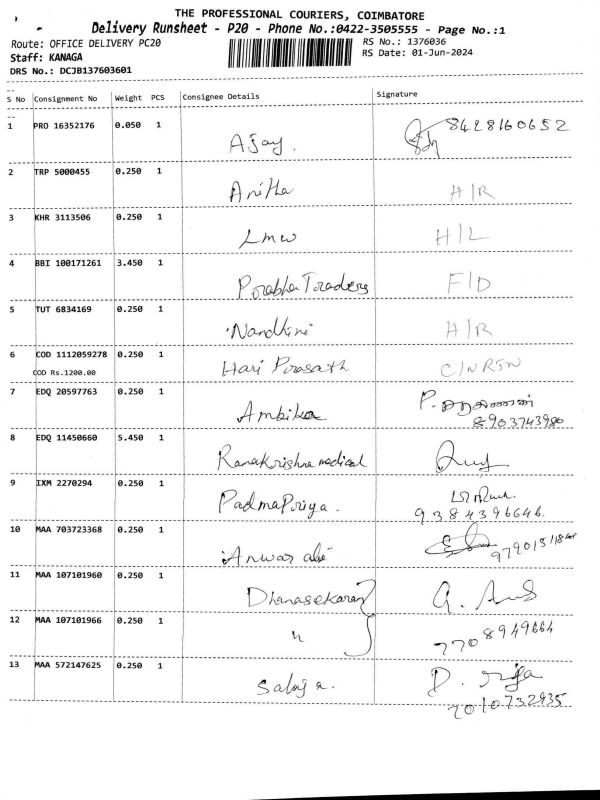 THE PROFESSIONAL COURIERS, COIMBATORE
Delivery Runsheet - P20 - Phone No.:0422-3505555 - Page No.:1
Route: OFFICE DELIVERY PC20 RS No.: 1376036
Staff: KANAGA RS Date: 01-Jun-2024
DRS No.: DCJB137603601
S No Consignment No Weight PCS Consignee Details Signature
1 PRO 16352176 0.050 1 Ajay. 8428160652
2 TRP 5000455 0.250 1 Anitha H/R
3 KHR 3113506 0.250 1 Lmw H/L
4 BBI 100171261 3.450 1 Prabha Traders F/D
5 TUT 6834169 0.250 1 Nandhini H/R
6 COD 1112059278 0.250 1 Hari Prasath C/NRSN
COD Rs.1200.00
7 EDQ 20597763 0.250 1 Ambika P. சரவணன்
8903743980
8 EDQ 11450660 5.450 1 Ramakrishna medical
9 IXM 2270294 0.250 1 PadmaPriya.
9384396646.
10 MAA 703723368 0.250 1 Anwar ali
11 MAA 107101960 0.250 1 Dhanasekaran G.
12 MAA 107101966 0.250 1 " 7708949664
13 MAA 572147625 0.250 1 Salaja. D.
7010732935